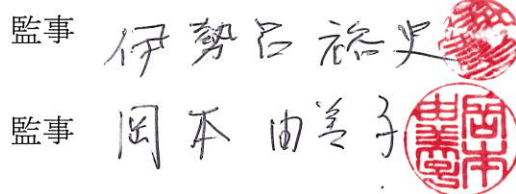 監事 伊勢呂 裕史
監事 岡本 由美子
岡本由美子